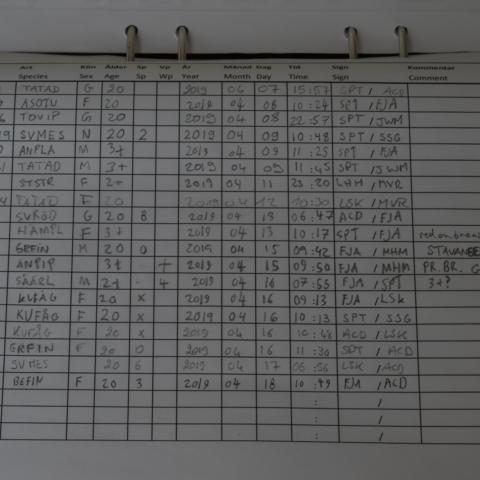 Art Kön Ålder Sp Vp År Månad Dag Tid Sign Kommentar
Species Sex Age Sp Wp Year Month Day Time Sign Comment
TATAD G 20 2019 04 07 15:57 SPT / ACD
ASOTU F 20 2019 04 08 10:24 SPT / FJA
TOVIP G 20 2019 04 08 22:57 SPT / JWM
SVMES N 20 2 2019 04 09 10:48 SPT / SSG
ANPLA M 3+ 2019 04 09 11:25 SPT / FJA
TATAD M 3+ 2019 04 09 11:45 SPT / JWM
STSTR F 2+ 2019 04 11 23:20 LHM / MVR
TATAD F 20 2019 04 12 10:30 LSK / MVR
SVRÖD G 20 8 2019 04 13 06:47 ACD / FJA
HÄMPL F 3+ 2019 04 13 10:17 SPT / FJA
GRFIN M 20 0 2019 04 15 09:42 FJA / MHM
ÄNPIP 3+ + 2019 04 15 09:50 FJA / MHM PR.BR. G
SÄÄRL M 2+ 4 2019 04 16 07:55 FJA / SPT 3+?
KUFÅG F 20 x 2019 04 16 09:13 FJA / LSK
KUFÅG F 20 x 2019 04 16 10:13 SPT / SSG
KUFÅG F 20 x 2019 04 16 10:48 ACD / LSK
GRFIN F 20 0 2019 04 16 11:30 SPT / ACD
SVMES 20 6 2019 04 17 06:56 LSK / ACD
BEFIN F 20 3 2019 04 18 10:49 FJA / ACD
: /
: /
: /